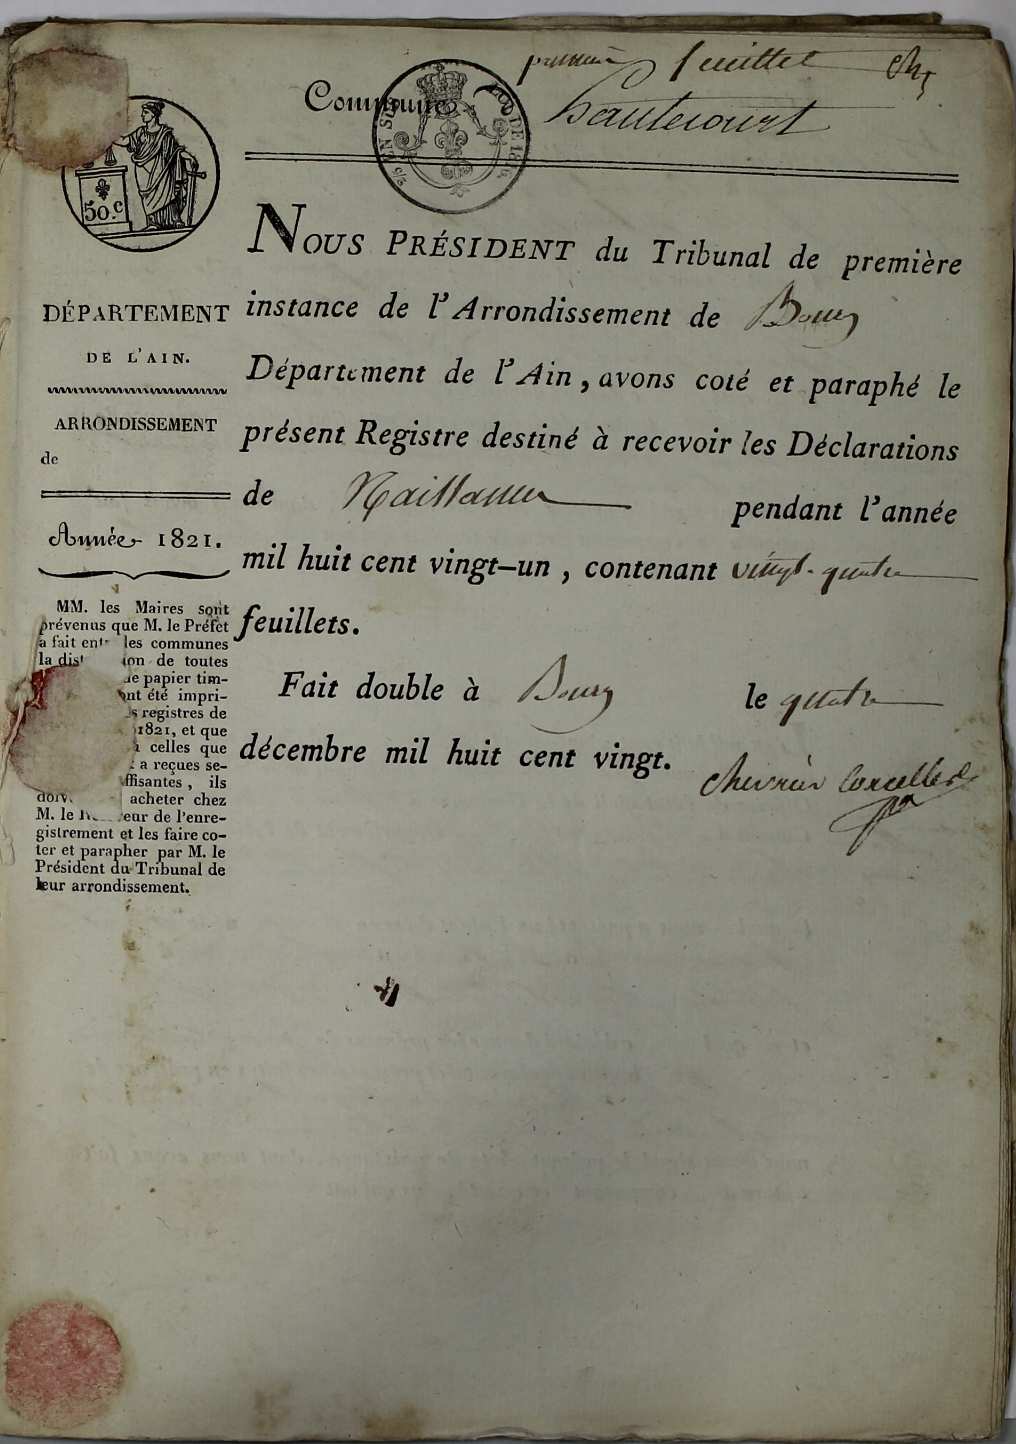 premier feuillet
Commune hautecourt
EN SUS
LOI DE 1816
50.c
NOUS PRÉSIDENT du Tribunal de première
instance de l'Arrondissement de Bourg
Département de l'Ain, avons coté et paraphé le
présent Registre destiné à recevoir les Déclarations
de Naissance pendant l'année
mil huit cent vingt-un, contenant vingt-quatre
feuillets.
Fait double à Bourg le quatre
décembre mil huit cent vingt.
chevrier Corcelles
DÉPARTEMENT
DE L'AIN.
ARRONDISSEMENT
de
Année 1821.
MM. les Maires sont
prévenus que M. le Préfet
a fait les communes
la de toutes
papier tim-
été impri-
registres de
1821, et que
celles que
a reçues se-
ils
acheter chez
M. le de l'enre-
gistrement et les faire co-
ter et parapher par M. le
Président du Tribunal de
leur arrondissement.